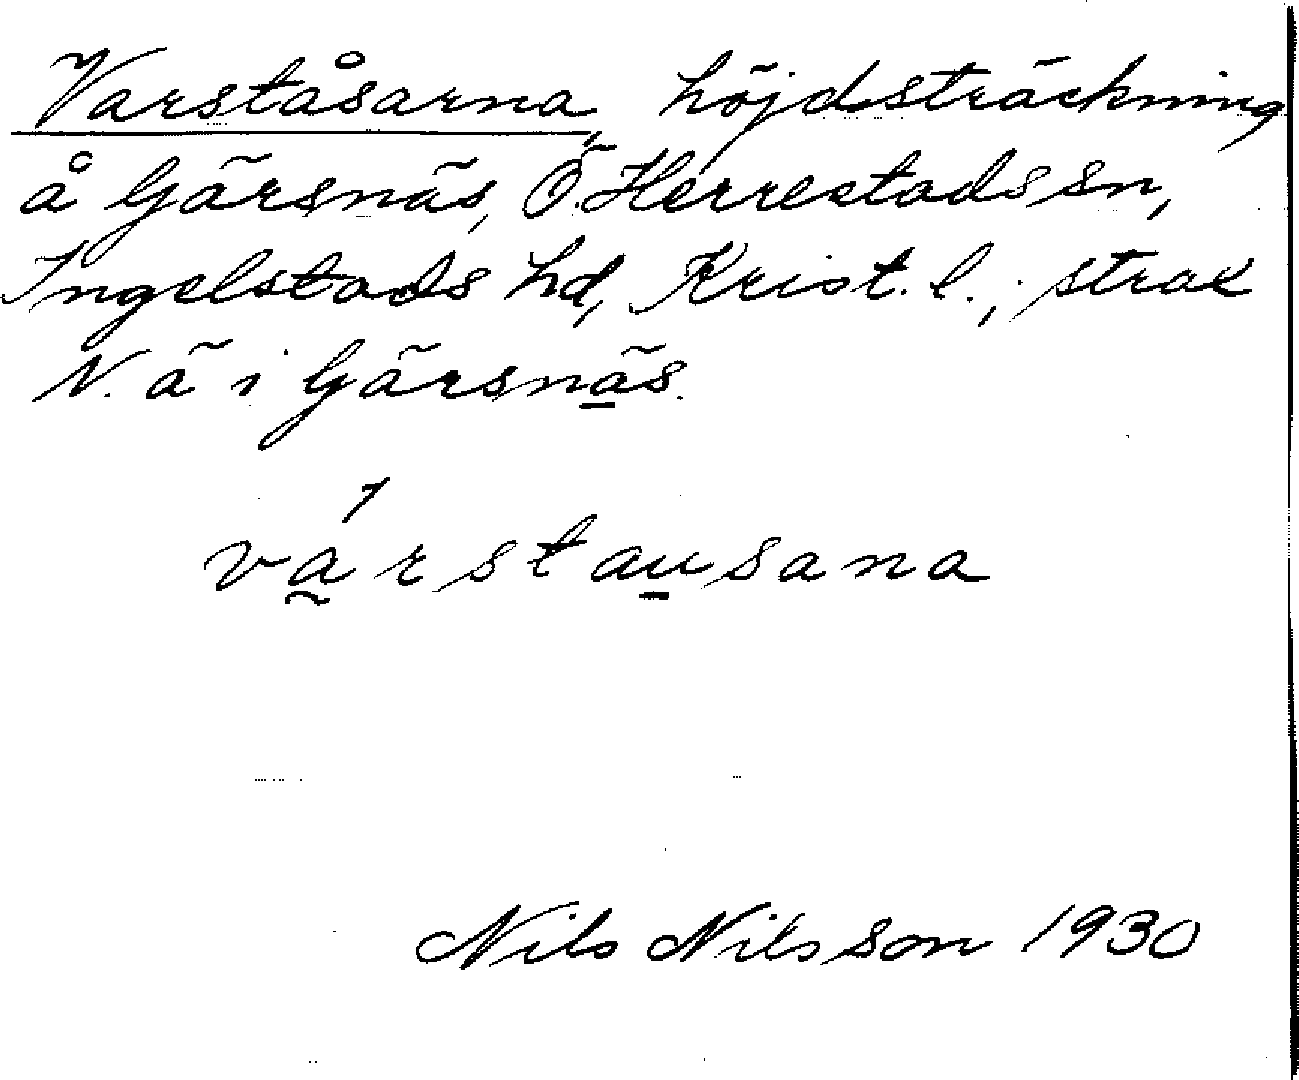 Varståsarna, höjdsträckning
å Gärsnäs, Ö. Herrestads sn,
Ingelstads hd, Krist. l., strax
N. ä i Gärsnäs.
várstausana
Nils Nilsson 1930